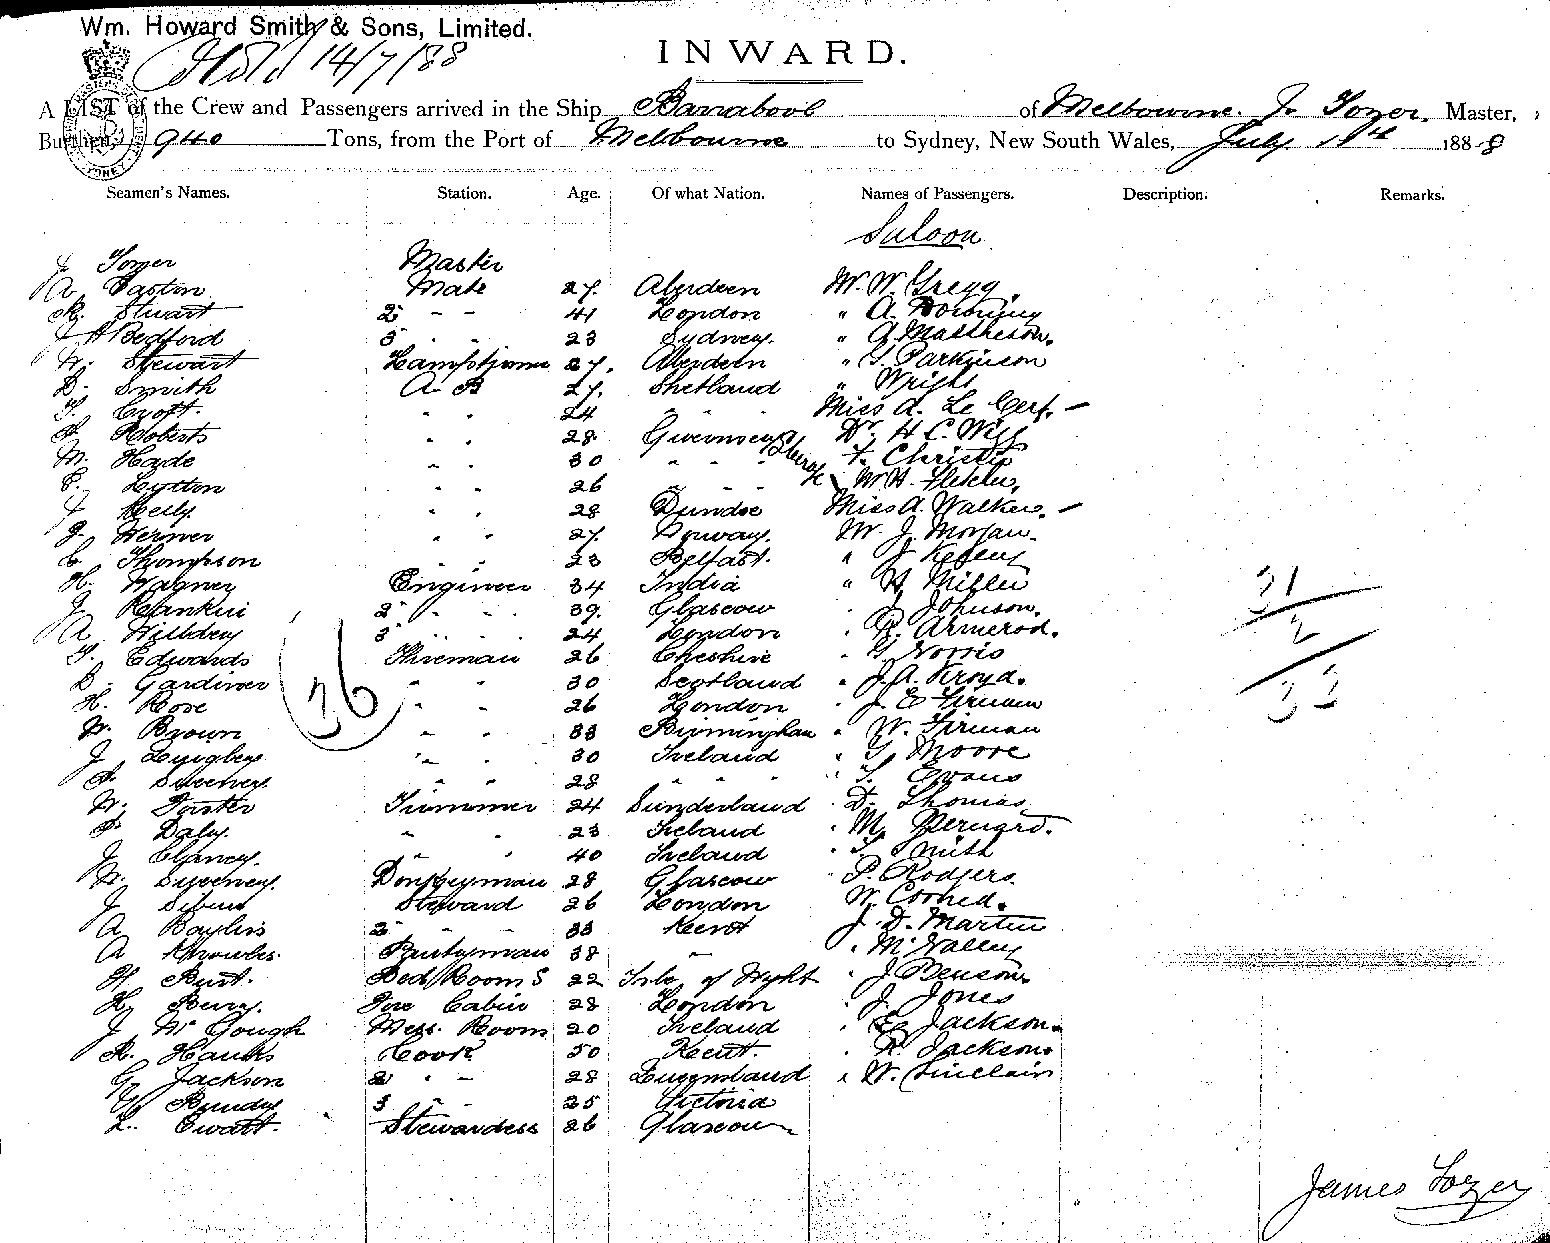 Wm. Howard Smith & Sons, Limited.
14/7/88
INWARD.
A LIST of the Crew and Passengers arrived in the Ship Barrabool of Melbourne. J. Tozer, Master,
Burthen, 940 Tons, from the Port of Melbourne to Sydney, New South Wales, July 14 1888
Seamen's Names. Station. Age. Of what Nation. Names of Passengers. Description. Remarks.
Saloon
J Tozer Master
A Easton Mate 27. Aberdeen Mr. W. Gregg.
R. Stuart 2 " " 41 London " A. Downing
J H Bedford 3 " " 23 Sydney. " A. Mattheson.
W. Stewart Lamptrimr 27. Aberdeen " G. Parkinson
D. Smith A B 27. Shetland " Wright
T. Croft. " " 24 " " Miss A. Le Cerf. –
A Roberts " " 28. Guernsey Dr. H C. Wigg
M. Hayde " " 30 " " " F. Christie
C. Lytton " " 26 " " " Mr H. Fletcher.
J Kelly " " 28 Dundee Miss A. Walker. –
J. Werner " " 27 Norway. Mr. J. Morgan.
C. Thompson " " 23 Belfast. " J Kelley
H. Wagner Engineer 34 India " H Miller
J. Rankin 2 " " 39. Glascow " J Johnson.
A Willdey 3 " " 24 London " R. Armerod.
T. Edwards Fireman 26 Cheshire " G Norris
D. Gardiner " " 30 Scotland " J. A. Kroyd.
H. Rose " " 26 London " J E Firman
W. Brown " " 33 Birmingham " W. Firman
J. Quigley " " 30 Ireland " G Moore
P. Sweeney. " " 28 " " " " T. Evans
W. Forster Trimmer 24 Sunderland " D. Thomas
P Daly. " " 23 Ireland " M. Pernard.
J. Clancy. " " 40 Ireland " T. Smith
W. Sweeney. Donkeyman 28 Glascow " P. Rodgers
J Steward 26 London " W.
A Bayliss 2 " " 33 Kent J. D. Martin
A Knowles. Pantryman 38 " " McValley
H Bust. Bed Room S 22 Isle of Wyht " J Benson.
H. Berry. Fore Cabin 28 London " J. Jones
J. W Gough Mess Room 20 Ireland " E. Jackson.
R. Hanks Cook 50 Kent. " R. Jackson.
G. Jackson 2 " " 28 Queensland " W. Sinclair
G Bundy 3 " " 25 Victoria
L. Ewatt. Stewardess 26 Glascow
36
31
2
33
James Tozer